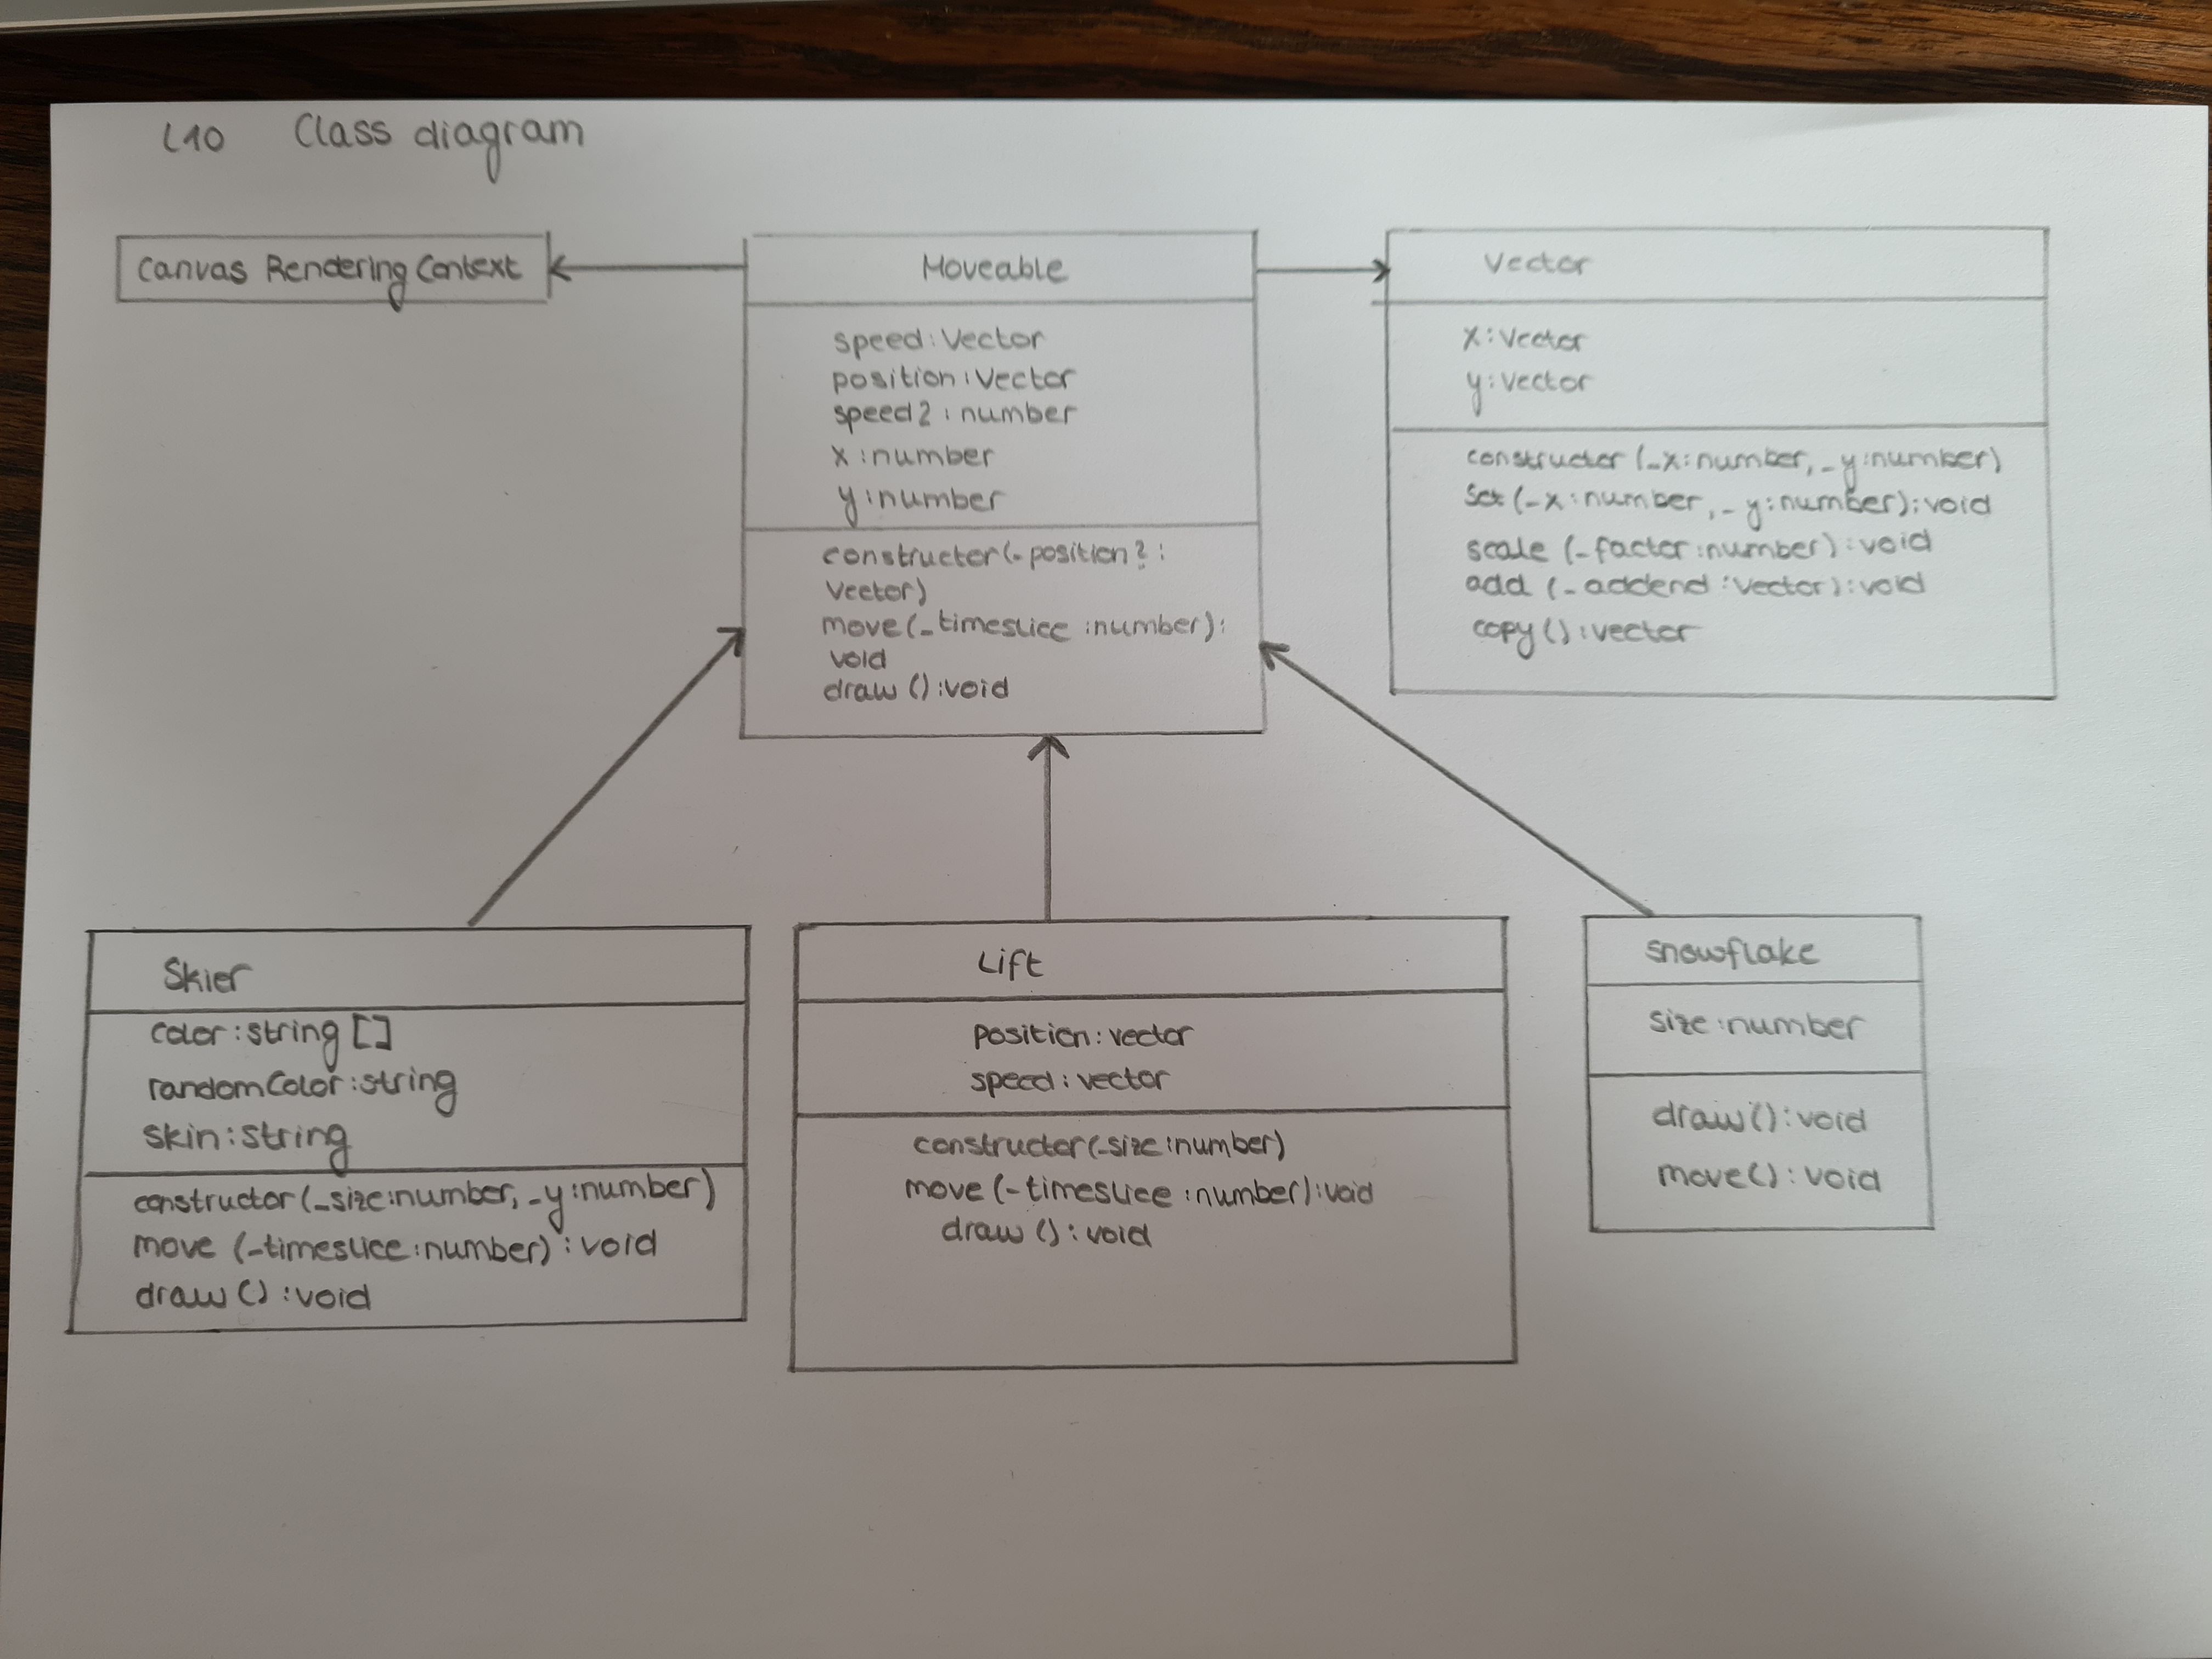 L10 Class diagram
Canvas Rendering Context
Moveable
speed:Vector
position:Vector
speed2:number
x:number
y:number
constructor(_position?:
Vector)
move(_timeslice:number):
void
draw():void
Vector
x:Vector
y:Vector
constructor(_x:number,_y:number)
set(_x:number,_y:number):void
scale(_factor:number):void
add(_addend:Vector):void
copy():vector
Skier
color:string[]
randomColor:string
skin:string
constructor(_size:number,_y:number)
move(_timeslice:number):void
draw():void
Lift
position:vector
speed:vector
constructor(_size:number)
move(_timeslice:number):void
draw():void
Snowflake
size:number
draw():void
move():void